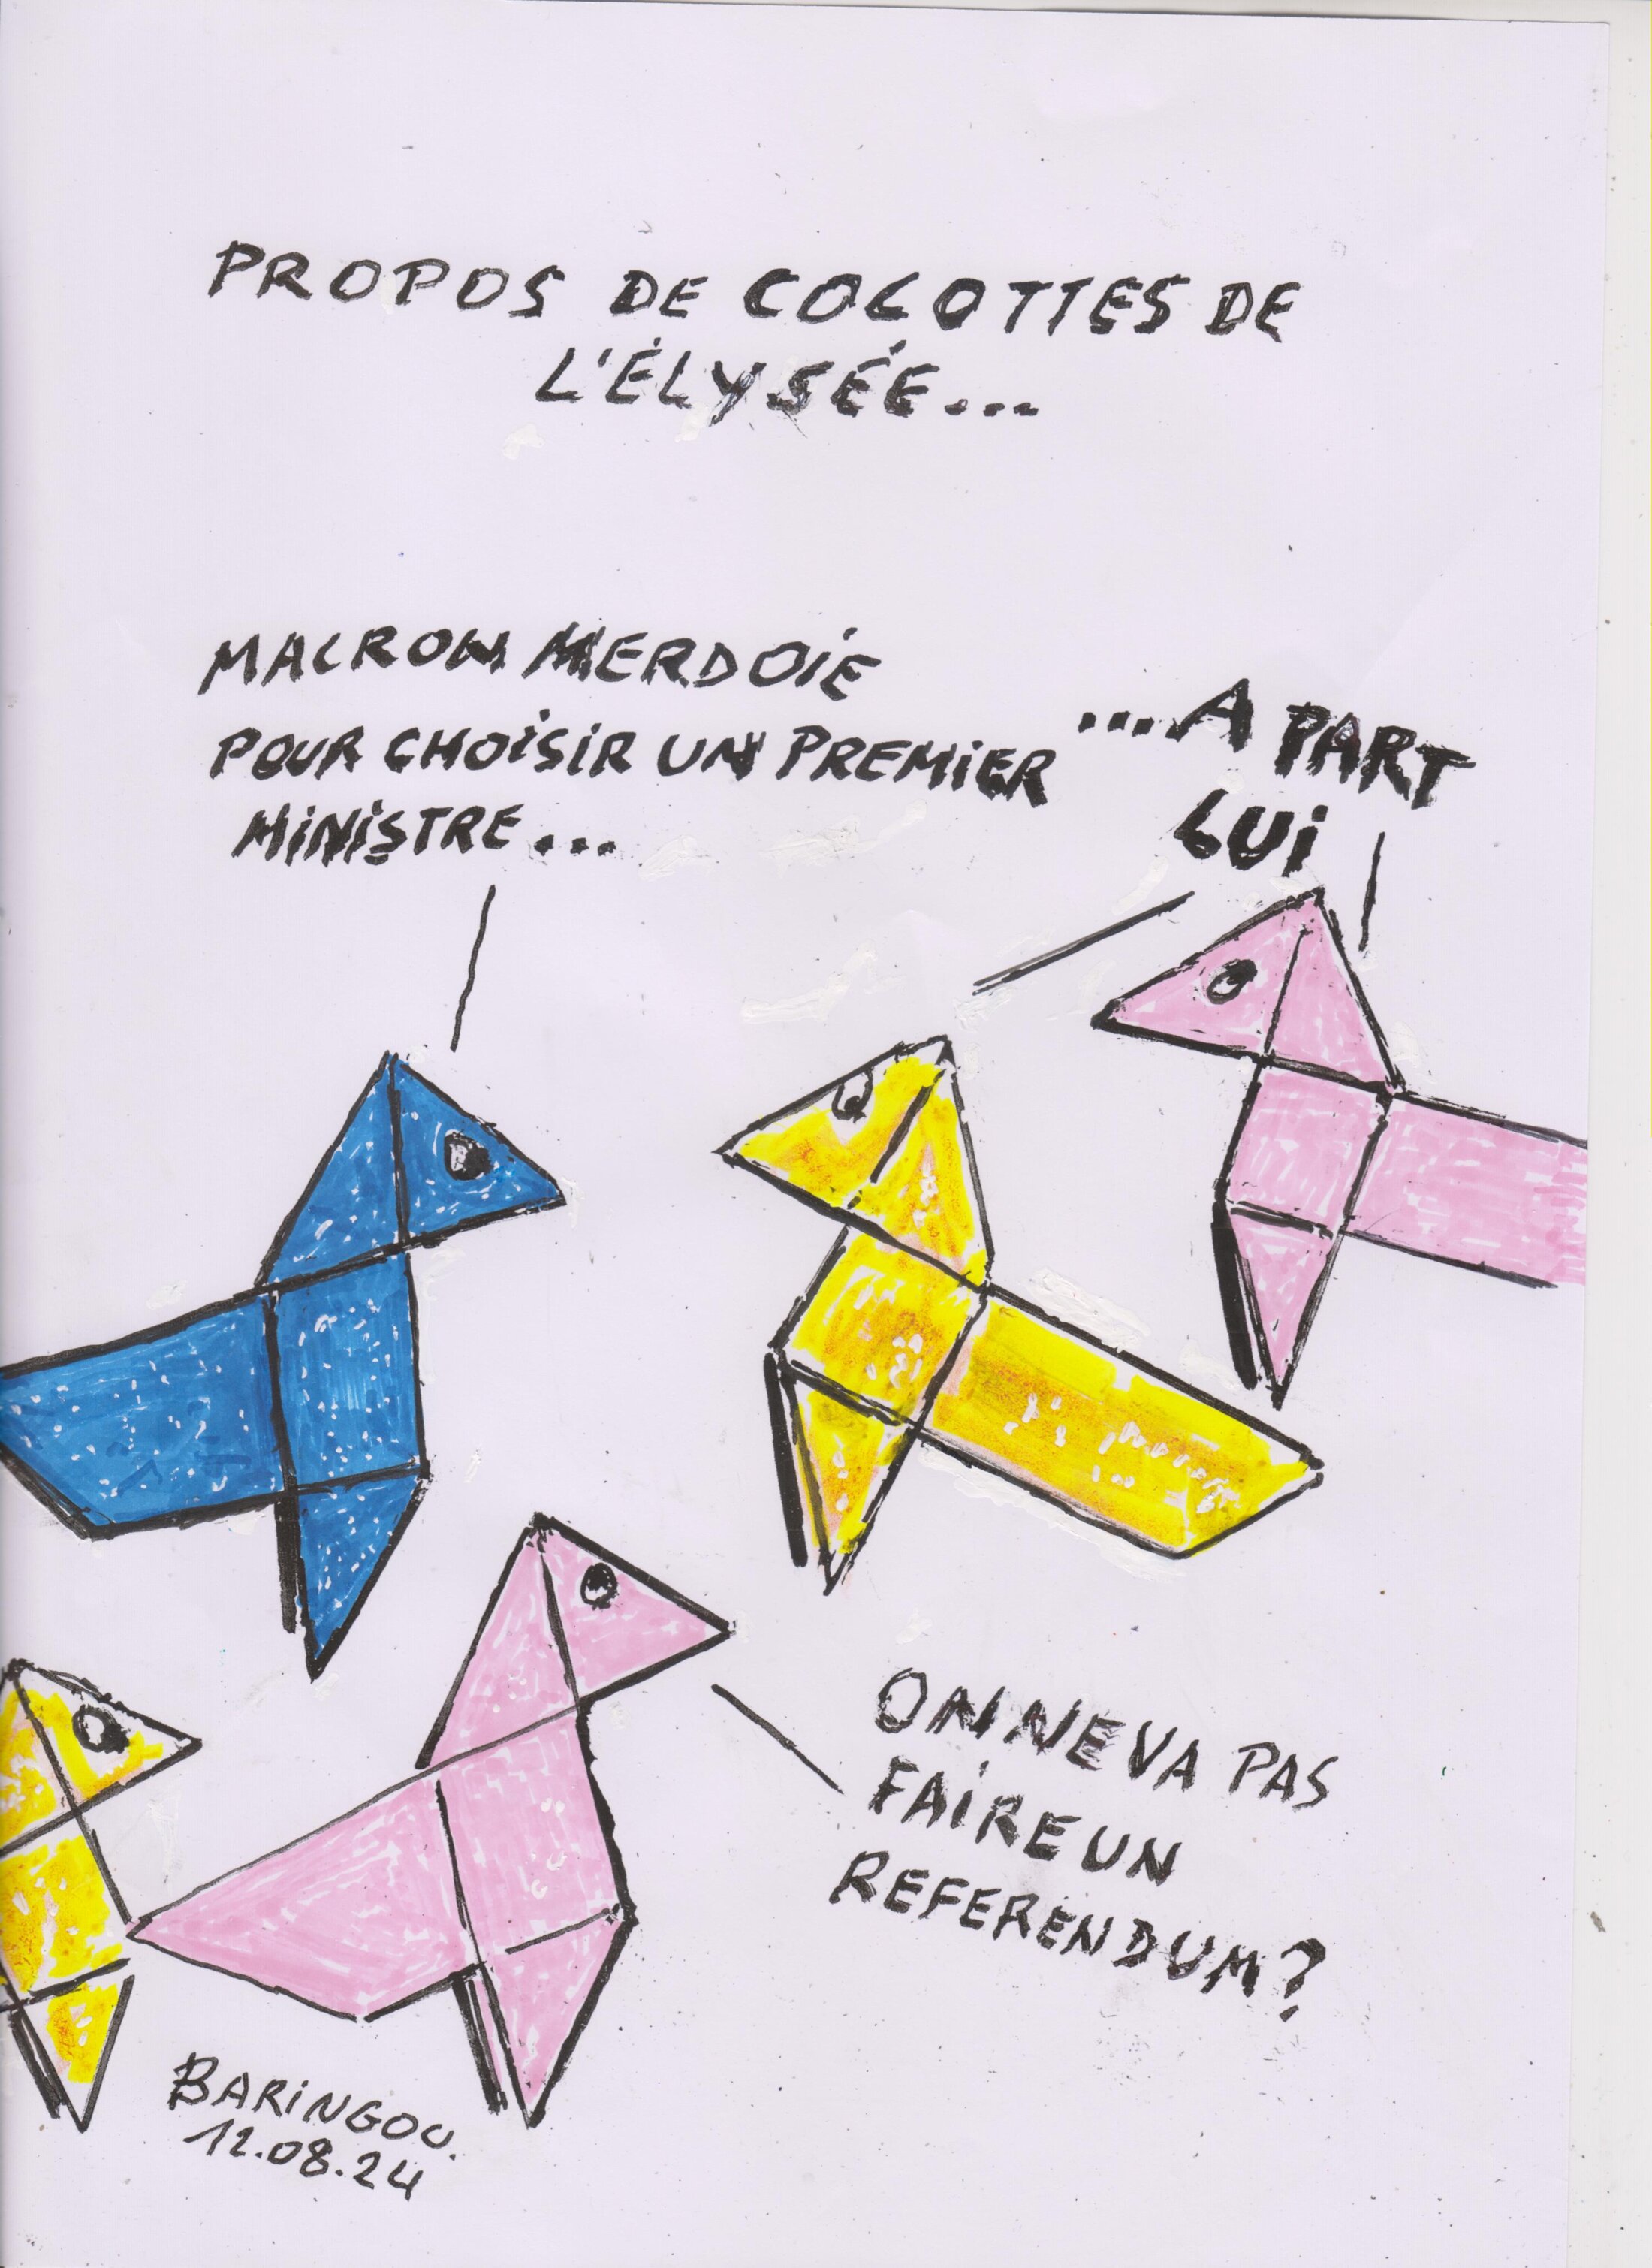 PROPOS DE COCOTTES DE
L'ÉLYSÉE...
MACRON MERDOIE
POUR CHOISIR UN PREMIER
MINISTRE...
...A PART
LUI
ON NE VA PAS
FAIRE UN
REFERENDUM?
BARINGOU.
12.08.24